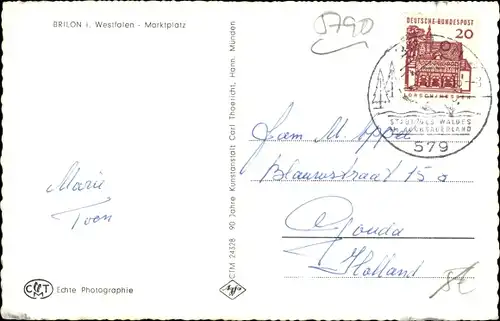 BRILON i. Westfalen - Marktplatz
5790
DEUTSCHE BUNDESPOST
20
LORSCH/HESSEN
STADT DES WALDES
IM HOCHSAUERLAND
579
Fam M. Appel
Blauwstraat 15a
Gouda
Holland
Marie
Toon
CTM 24328 90 Jahre Kunstanstalt Carl Thoericht, Hann. Münden
Agfa
CTM
Echte Photographie